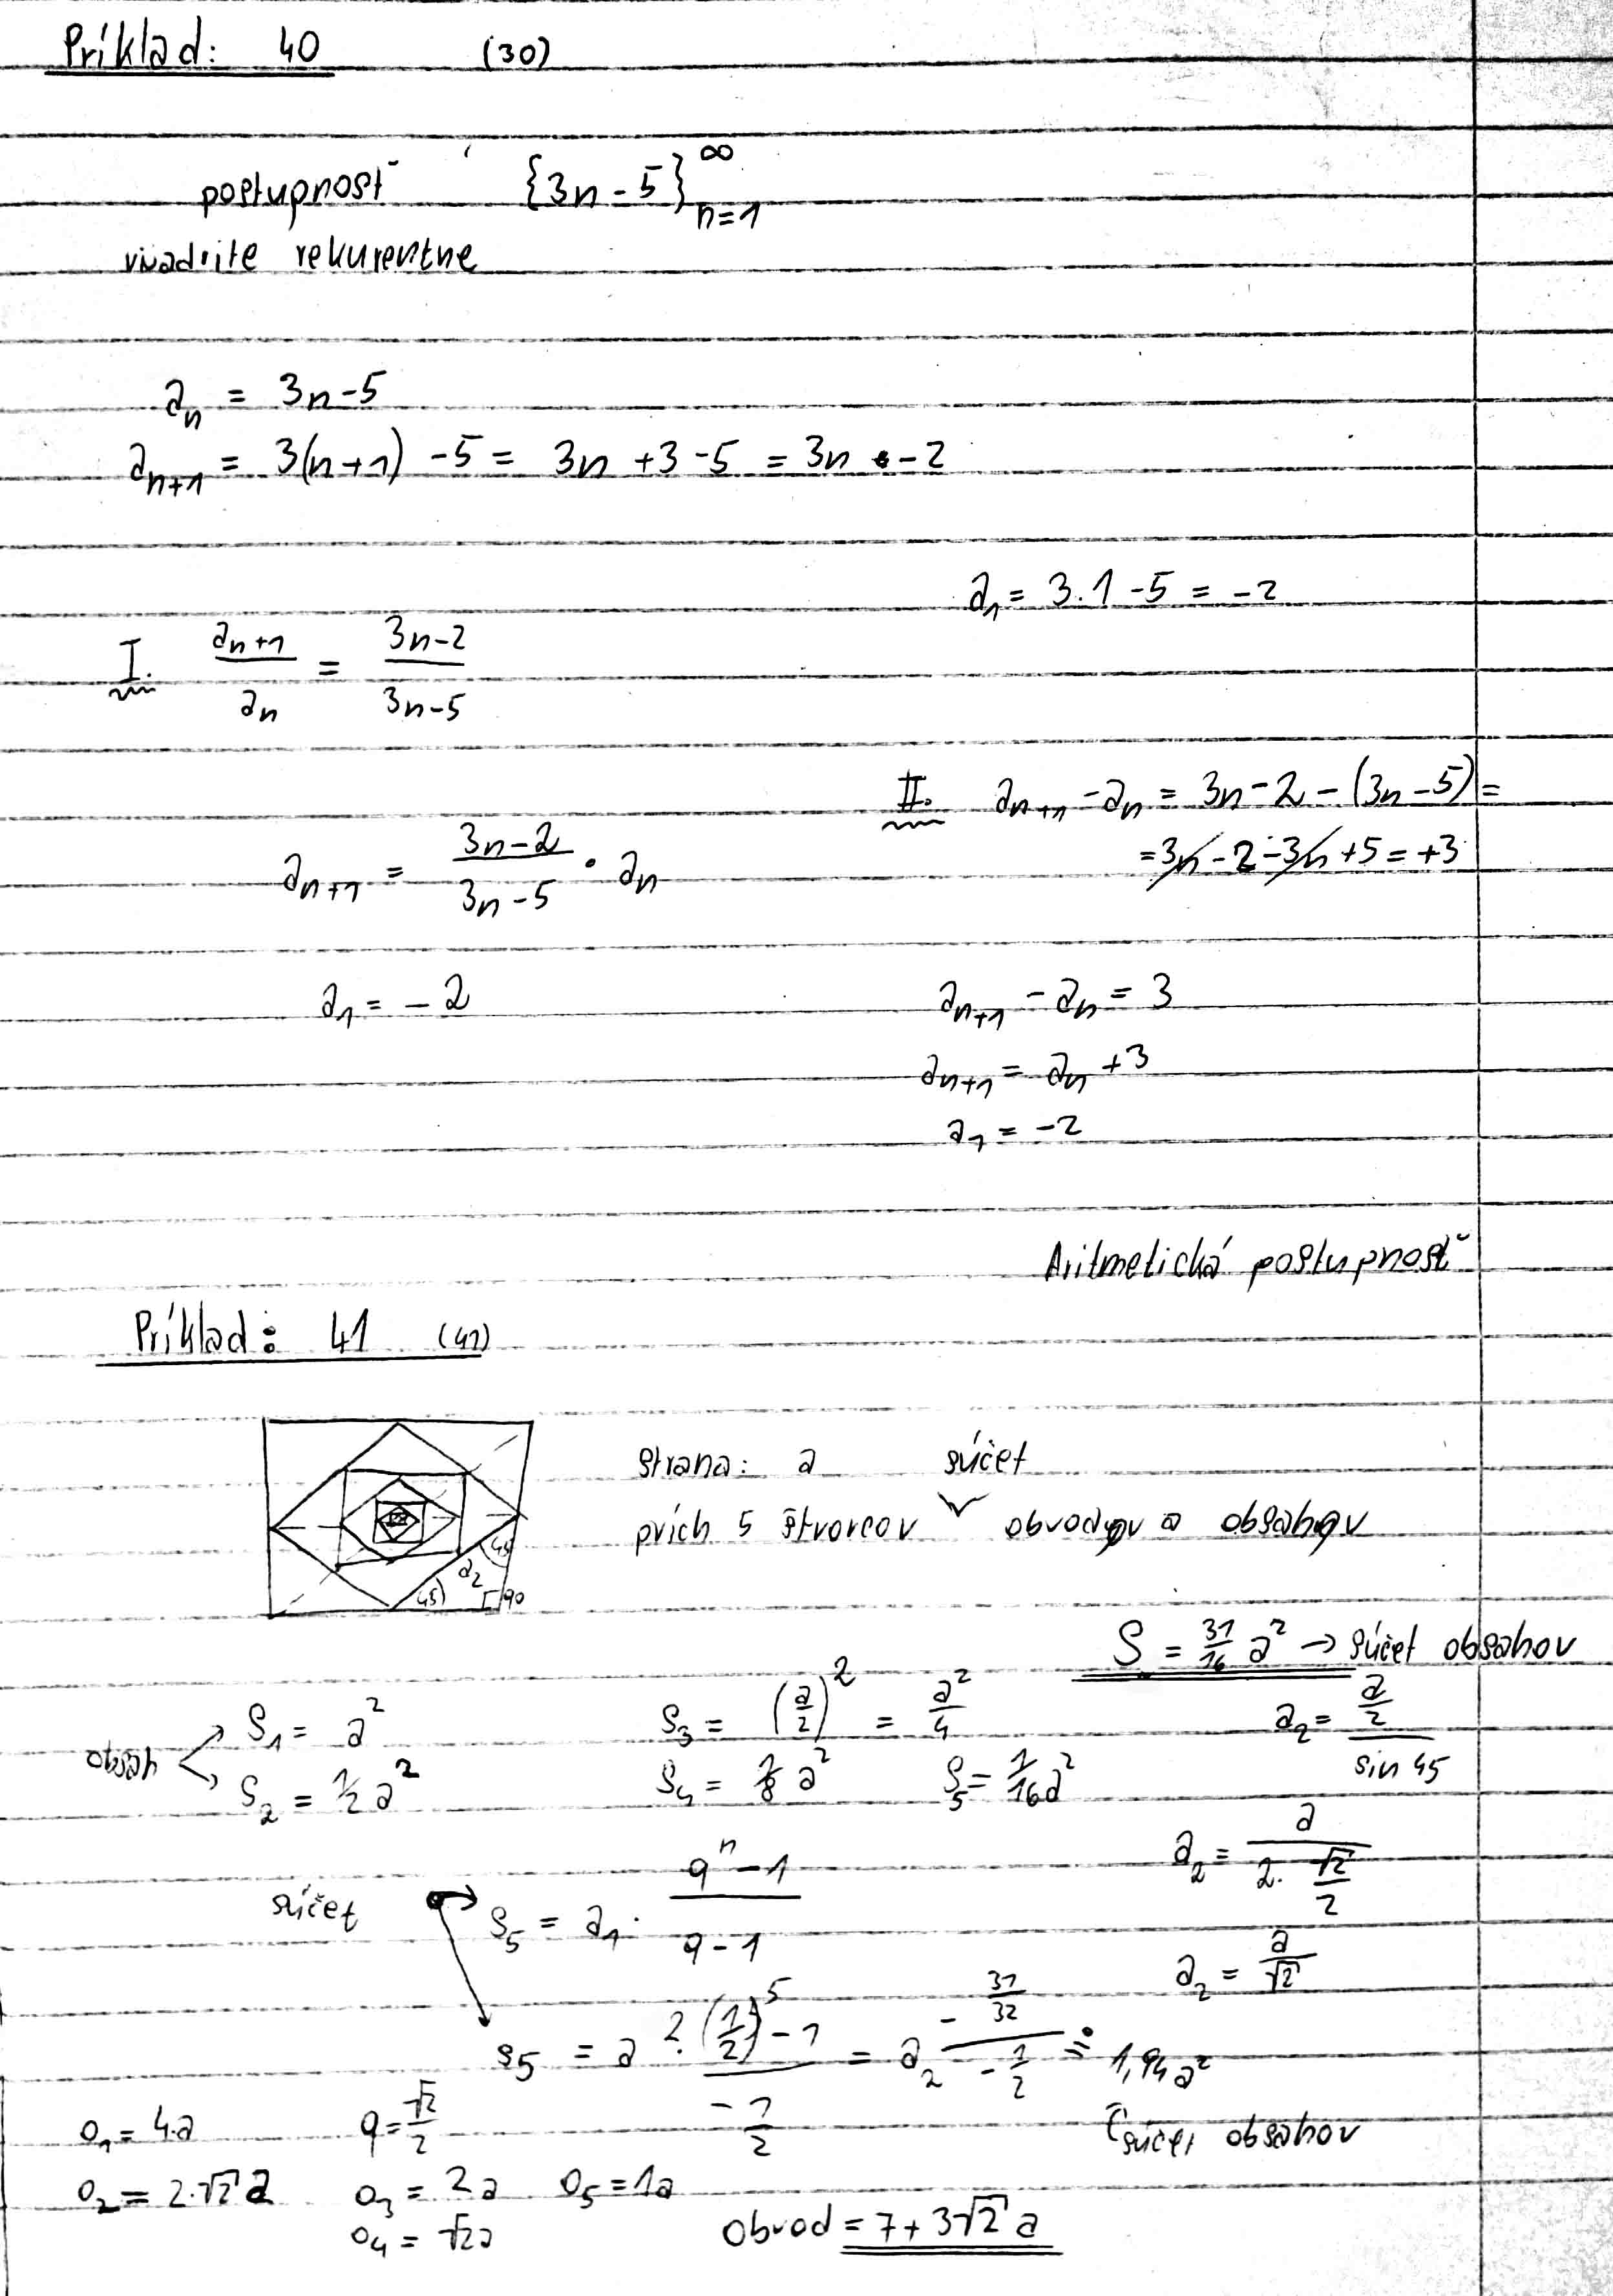 Príklad: 40 (30)
postupnosť {3n-5}∞n=1
vyjadrite rekurentne
an = 3n-5
an+1 = 3(n+1) -5 = 3n +3-5 = 3n -2
a1 = 3.1 -5 = -2
I. an+1/an = 3n-2/3n-5
II. an+1 -an = 3n-2-(3n-5) =
= 3n-2-3n+5 = +3
an+1 = 3n-2/3n-5 · an
a1 = -2
an+1 -an = 3
an+1 = an +3
a1 = -2
Aritmetická postupnosť
Príklad: 41 (41)
strana: a súčet
prích 5 štvorcov obvodov a obsahov
45
a2
45 90
S = 31/16 a² → súčet obsahov
obsah S1 = a²
S2 = 1/2 a²
S3 = (a/2)² = a²/4
S4 = 1/8 a² S5 = 1/16 a²
a2 = a/2 / sin 45
a2 = a / 2·√2/2
súčet S5 = a1 · qⁿ-1 / q-1
a2 = a/√2
S5 = a² · (1/2)⁵-1 / -1/2 = a2 -31/32 / -1/2 ≐ 1,94a²
súčet obsahov
o1 = 4.a q = √2/2
o2 = 2.√2 a o3 = 2a o5 = 1a
o4 = √2a
Obvod = 7+3√2 a